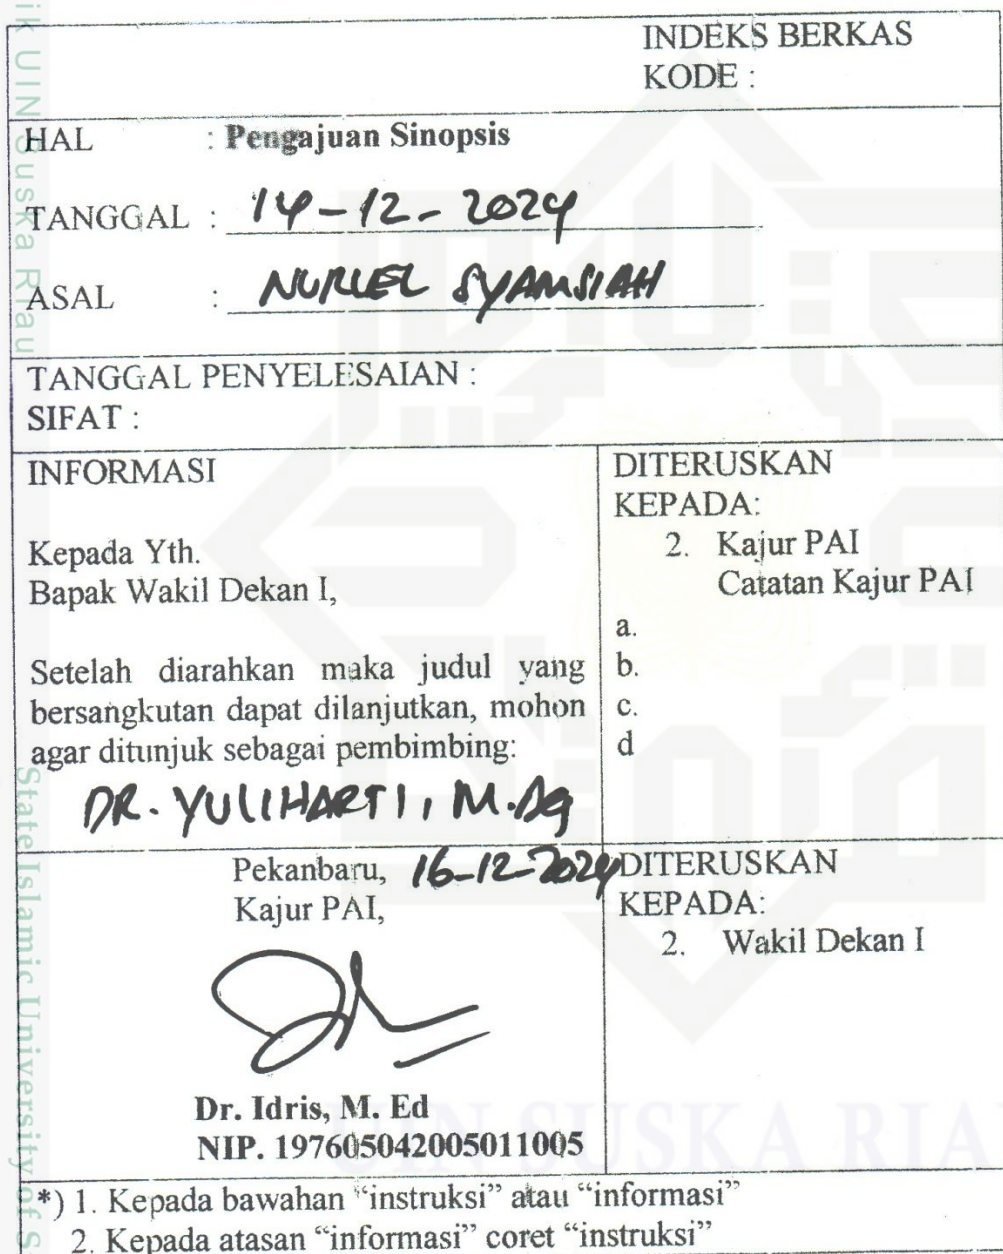 INDEKS BERKAS
KODE :
HAL : Pengajuan Sinopsis
TANGGAL : 14-12-2024
ASAL : NURLEL SYAMSIAH
TANGGAL PENYELESAIAN :
SIFAT :
INFORMASI
Kepada Yth.
Bapak Wakil Dekan I,
Setelah diarahkan maka judul yang
bersangkutan dapat dilanjutkan, mohon
agar ditunjuk sebagai pembimbing:
DR. YULIHARTI, M.Ag
DITERUSKAN
KEPADA:
2. Kajur PAI
Catatan Kajur PAI
a.
b.
c.
d
Pekanbaru, 16-12-2024
Kajur PAI,
Dr. Idris, M. Ed
NIP. 197605042005011005
DITERUSKAN
KEPADA:
2. Wakil Dekan I
*) 1. Kepada bawahan “instruksi” atau “informasi”
2. Kepada atasan “informasi” coret “instruksi”
ik UIN Suska Riau
State Islamic University of S
UIN SUSKA RIA